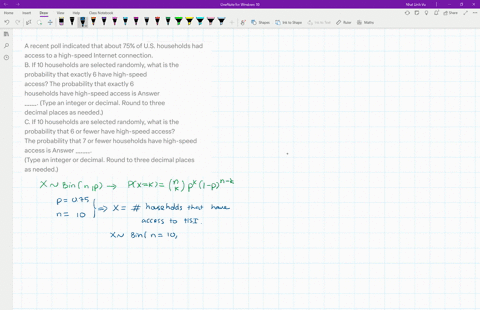 OneNote for Windows 10
Nhat Linh Vu
File Home Insert Draw View Help Class Notebook
Shapes Ink to Shape Ink to Text Ruler Maths
A recent poll indicated that about 75% of U.S. households had
access to a high-speed Internet connection.
B. If 10 households are selected randomly, what is the
probability that exactly 6 have high-speed
access? The probability that exactly 6
households have high-speed access is Answer
____. (Type an integer or decimal. Round to three
decimal places as needed.)
C. If 10 households are selected randomly, what is the
probability that 6 or fewer have high-speed access?
The probability that 7 or fewer households have high-speed
access is Answer ____.
(Type an integer or decimal. Round to three decimal places
as needed.)
X ~ Bin(n,p) → P(X=k) = (n k) p^k (1-p)^n-k
p = 0.75
n = 10 } ⇒ X = # households that have
access to HSI.
X ~ Bin(n = 10,